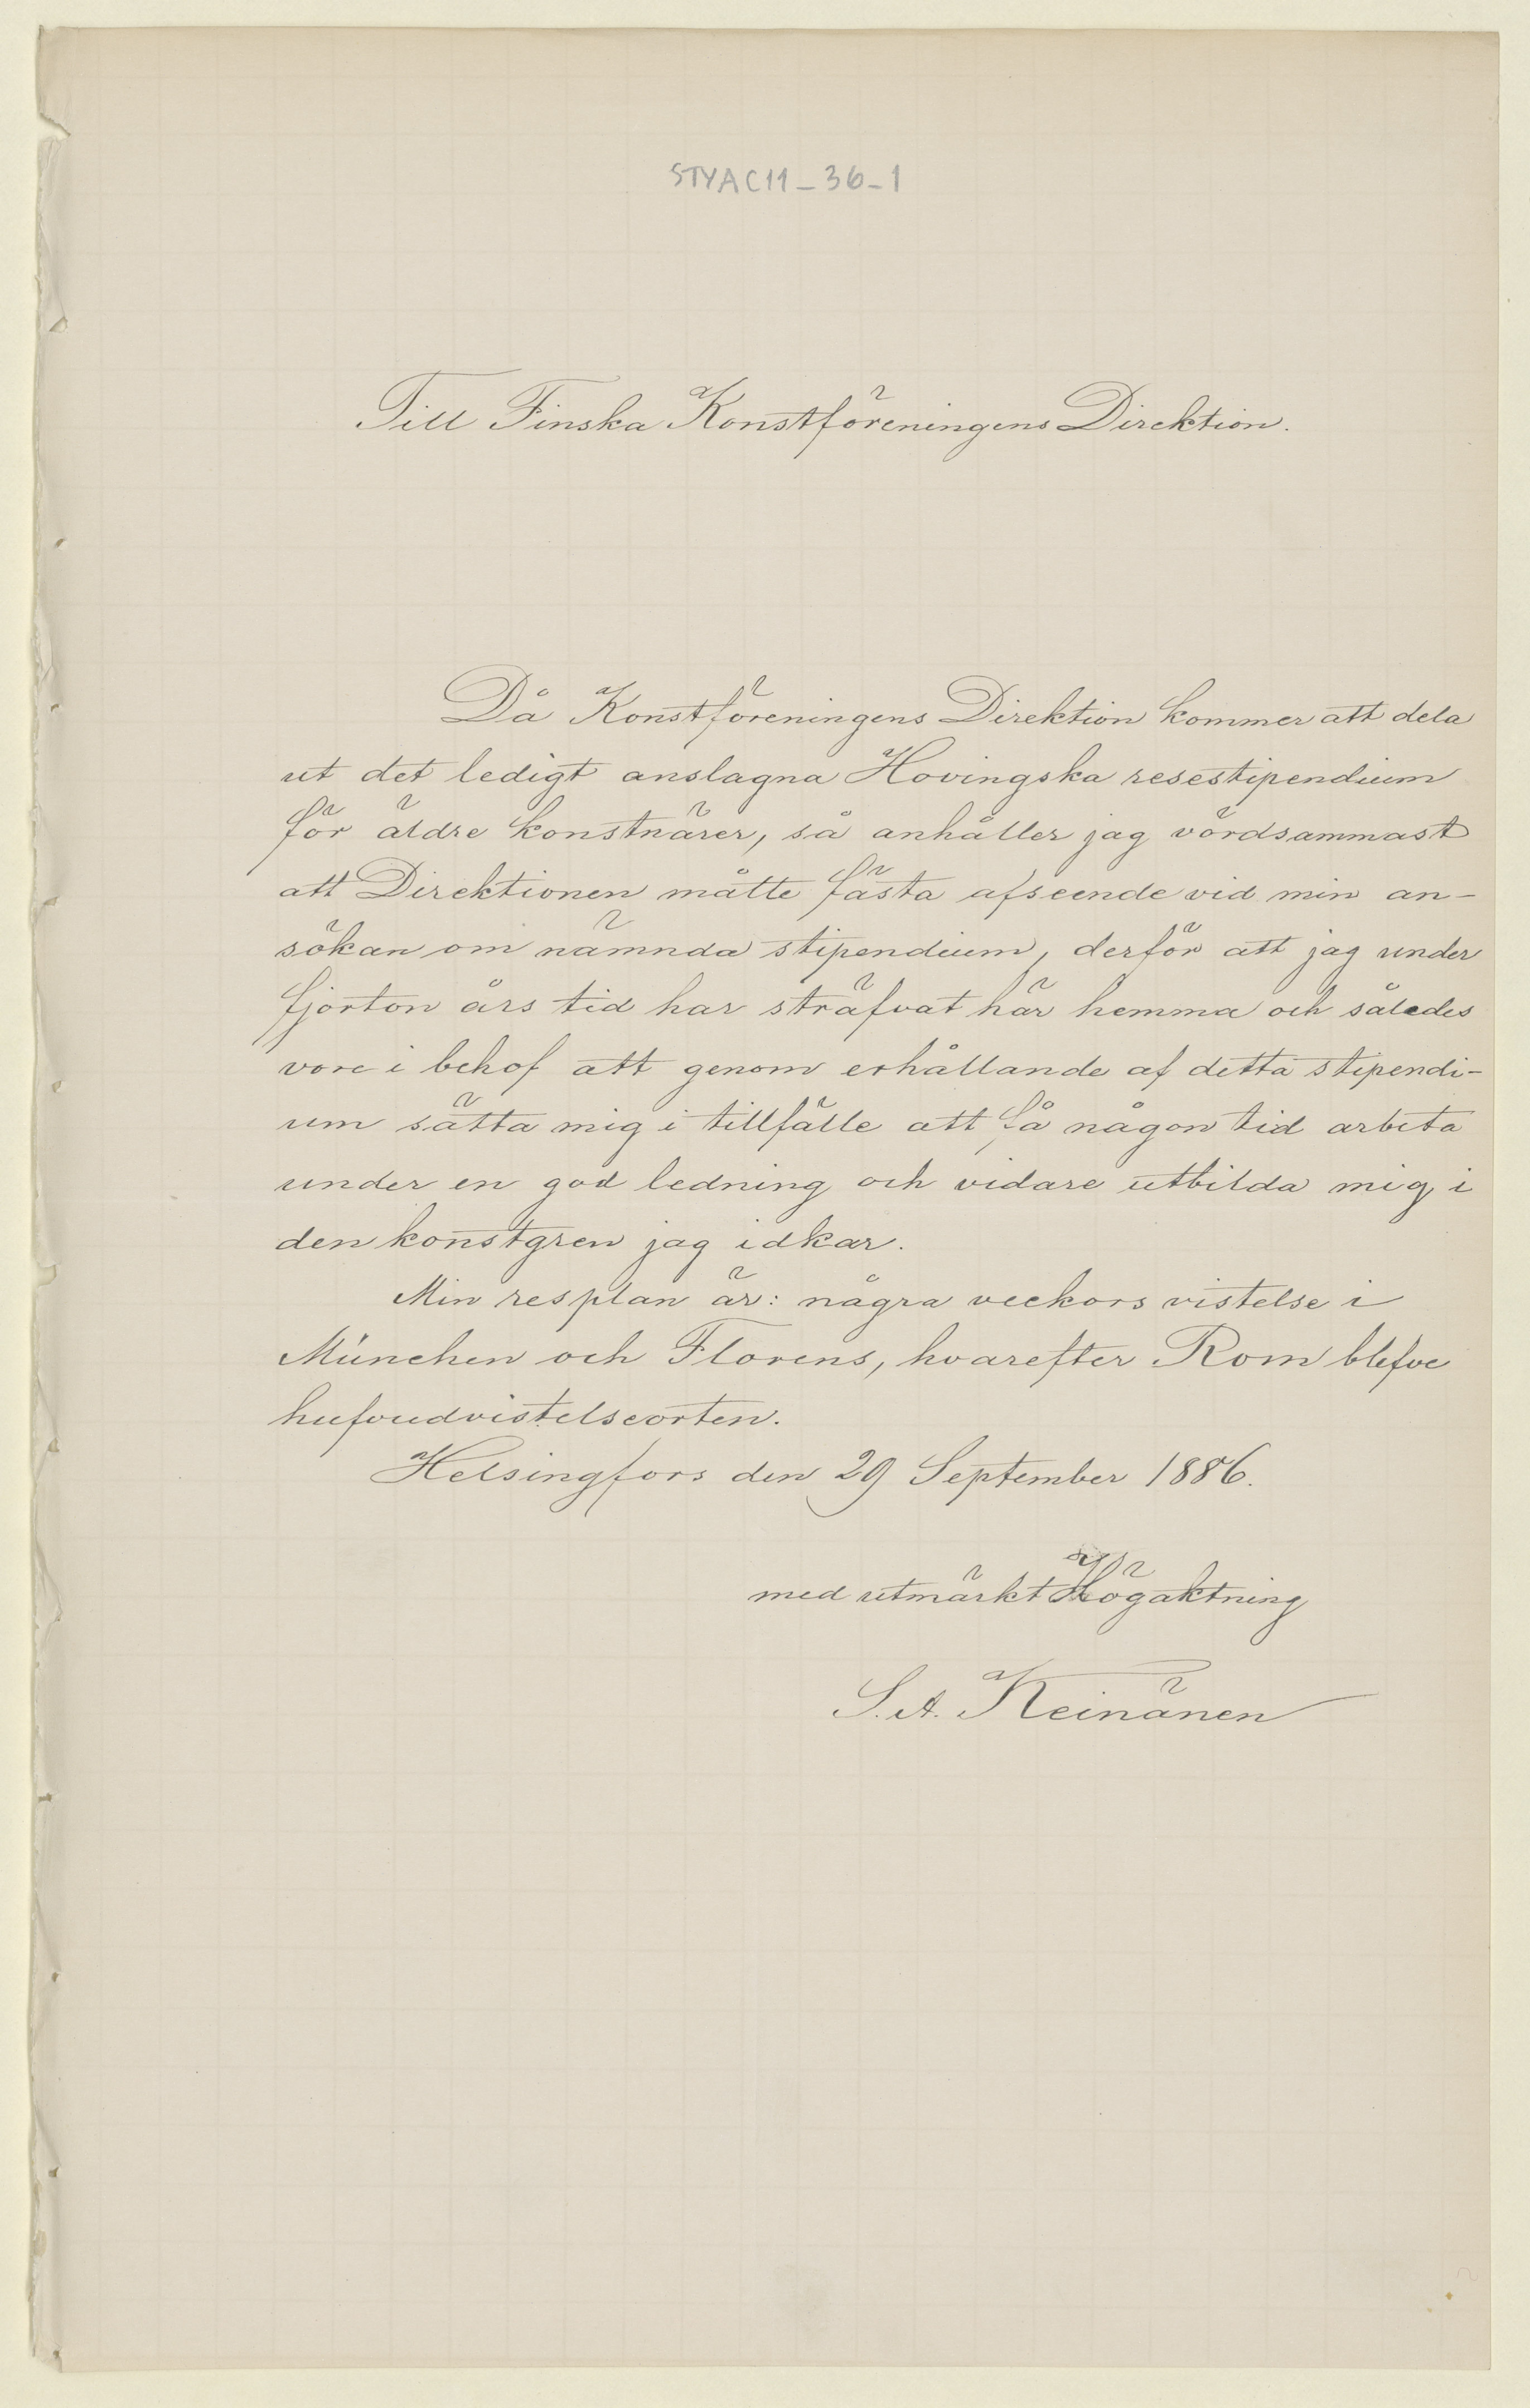 STYAC11_36_1
Till Finska Konstföreningens Direktion.
Då Konstföreningens Direktion kommer att dela
ut det ledigt anslagna Hovingska resestipendium
för äldre konstnärer, så anhåller jag vördsammast
att Direktionen måtte fästa afseende vid min an-
sökan om nämnda stipendium, derför att jag under
fjorton års tid har sträfvat här hemma och således
vore i behof att genom erhållande af detta stipendi-
um sätta mig i tillfälle att få någon tid arbeta
under en god ledning och vidare utbilda mig i
den konstgren jag idkar.
Min resplan är: några veckors vistelse i
München och Florens, hvarefter Rom blefve
hufvudvistelseorten.
Helsingfors den 29 September 1886.
med utmärkt Högaktning
S. A. Keinänen